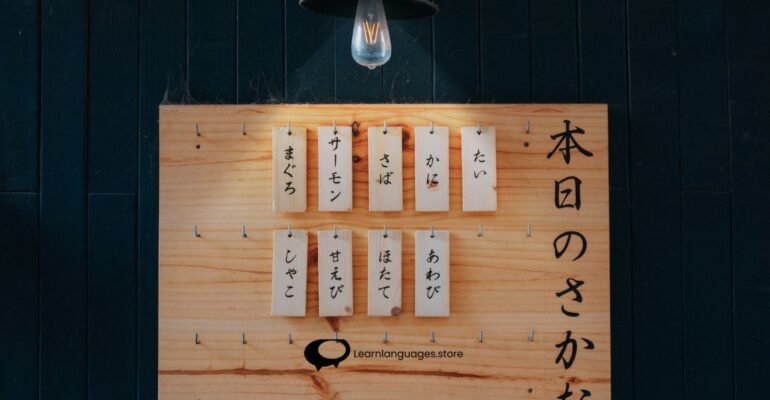 本日のさかな
たい
かに
さば
サーモン
まぐろ
あわび
ほたて
甘えび
しゃこ
Learnlanguages.store